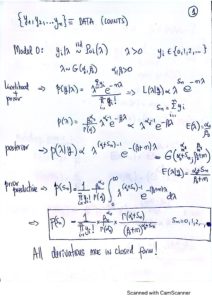 1
{y₁, y₂, ... yₙ} ≡ DATA (COUNTS)
Model 0: yᵢ|λ iid~ Poi(λ) λ>0 yᵢ ∈ {0,1,2,...}
λ ~ G(α₀,β₀) α₀,β₀>0
likelihood + prior → p(y|λ) = λ^{Sₙ} e^{-nλ} / ∏yᵢ! → L(λ|y) ∝ λ^{Sₙ} e^{-nλ}
Sₙ = Σyᵢ
p(λ) = β₀^{α₀}/Γ(α₀) λ^{α₀-1} e^{-β₀λ} ∝ λ^{α₀-1} e^{-β₀λ} E(λ) = α₀/β₀
posterior → p(λ|y) ∝ λ^{(α₀+Sₙ)-1} e^{-(β₀+n)λ} = G(α₀+Sₙ, β₀+n)
E(λ|y) = α₀+Sₙ / β₀+n
prior predictive → p(Sₙ) = 1/∏yᵢ! β₀^{α₀}/Γ(α₀) ∫₀^∞ λ^{(α₀+Sₙ)-1} e^{-(β₀+n)λ} dλ
→ p(Sₙ) = 1/∏yᵢ! × β₀^{α₀}/Γ(α₀) × Γ(α₀+Sₙ)/(β₀+n)^{α₀+Sₙ} Sₙ=0,1,2,..
All derivations are in closed form!
Scanned with CamScanner